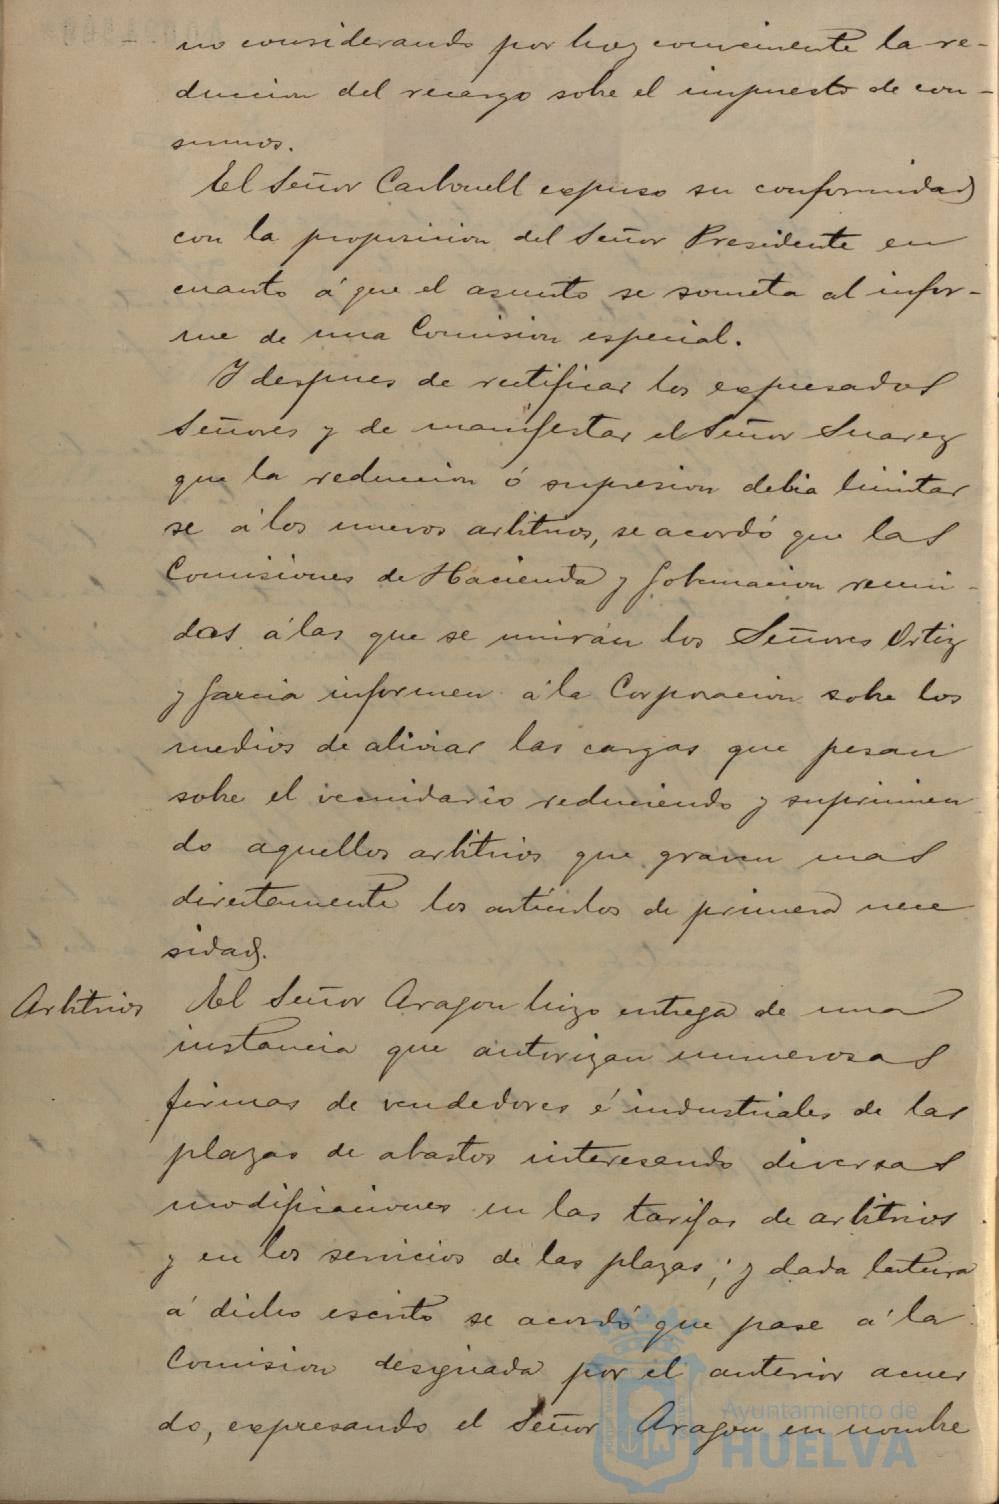 no considerando por hoy conveniente la re-
duccion del recargo sobre el impuesto de con-
sumos.
El Señor Carbonell expuso su conformidad
con la proposicion del Señor Presidente en
cuanto á que el asunto se someta al infor-
me de una Comision especial.
Y despues de rectificar los expresados
Señores y de manifestar el Señor Suarez
que la reduccion ó supresion debia limitar
se á los nuevos arbitrios, se acordó que las
Comisiones de Hacienda y Gobernacion reuni-
das á las que se unirán los Señores Ortiz
y Garcia informen á la Corporacion sobre los
medios de aliviar las cargas que pesan
sobre el vecindario reduciendo y suprimien
do aquellos arbitrios que graven mas
directamente los articulos de primera nece
sidad.
Arbitrios El Señor Aragon hizo entrega de una
instancia que autorizan numerosas
firmas de vendedores é industriales de las
plazas de abastos interesando diversas
modificaciones en las tarifas de arbitrios
y en los servicios de las plazas; y dada lectura
á dicho escrito se acordó que pase á la
Comision designada por el anterior acuer
do, expresando el Señor Aragon en nombre
Ayuntamiento de
HUELVA